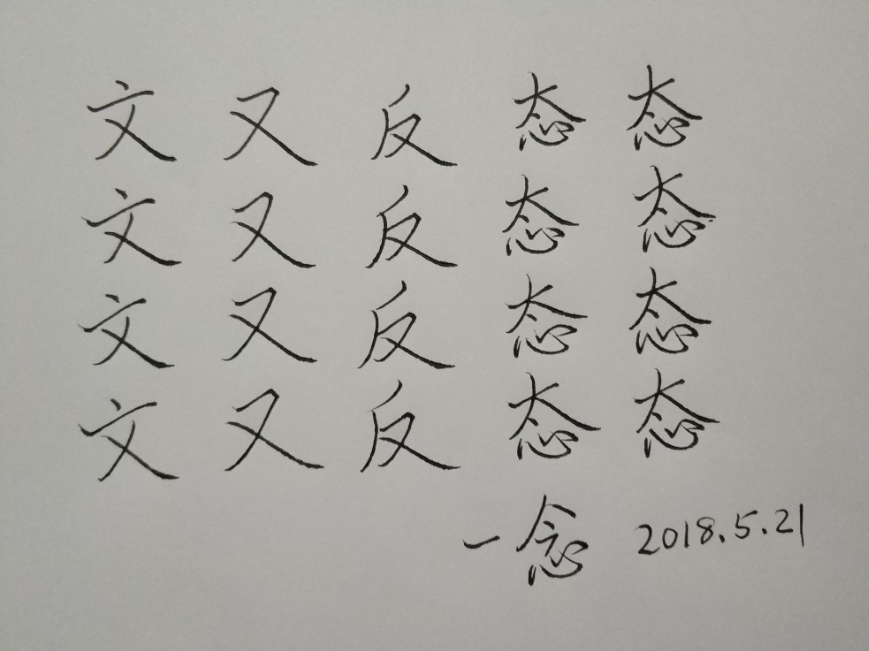 文又反态态
文又反态态
文又反态态
文又反态态
一念 2018.5.21